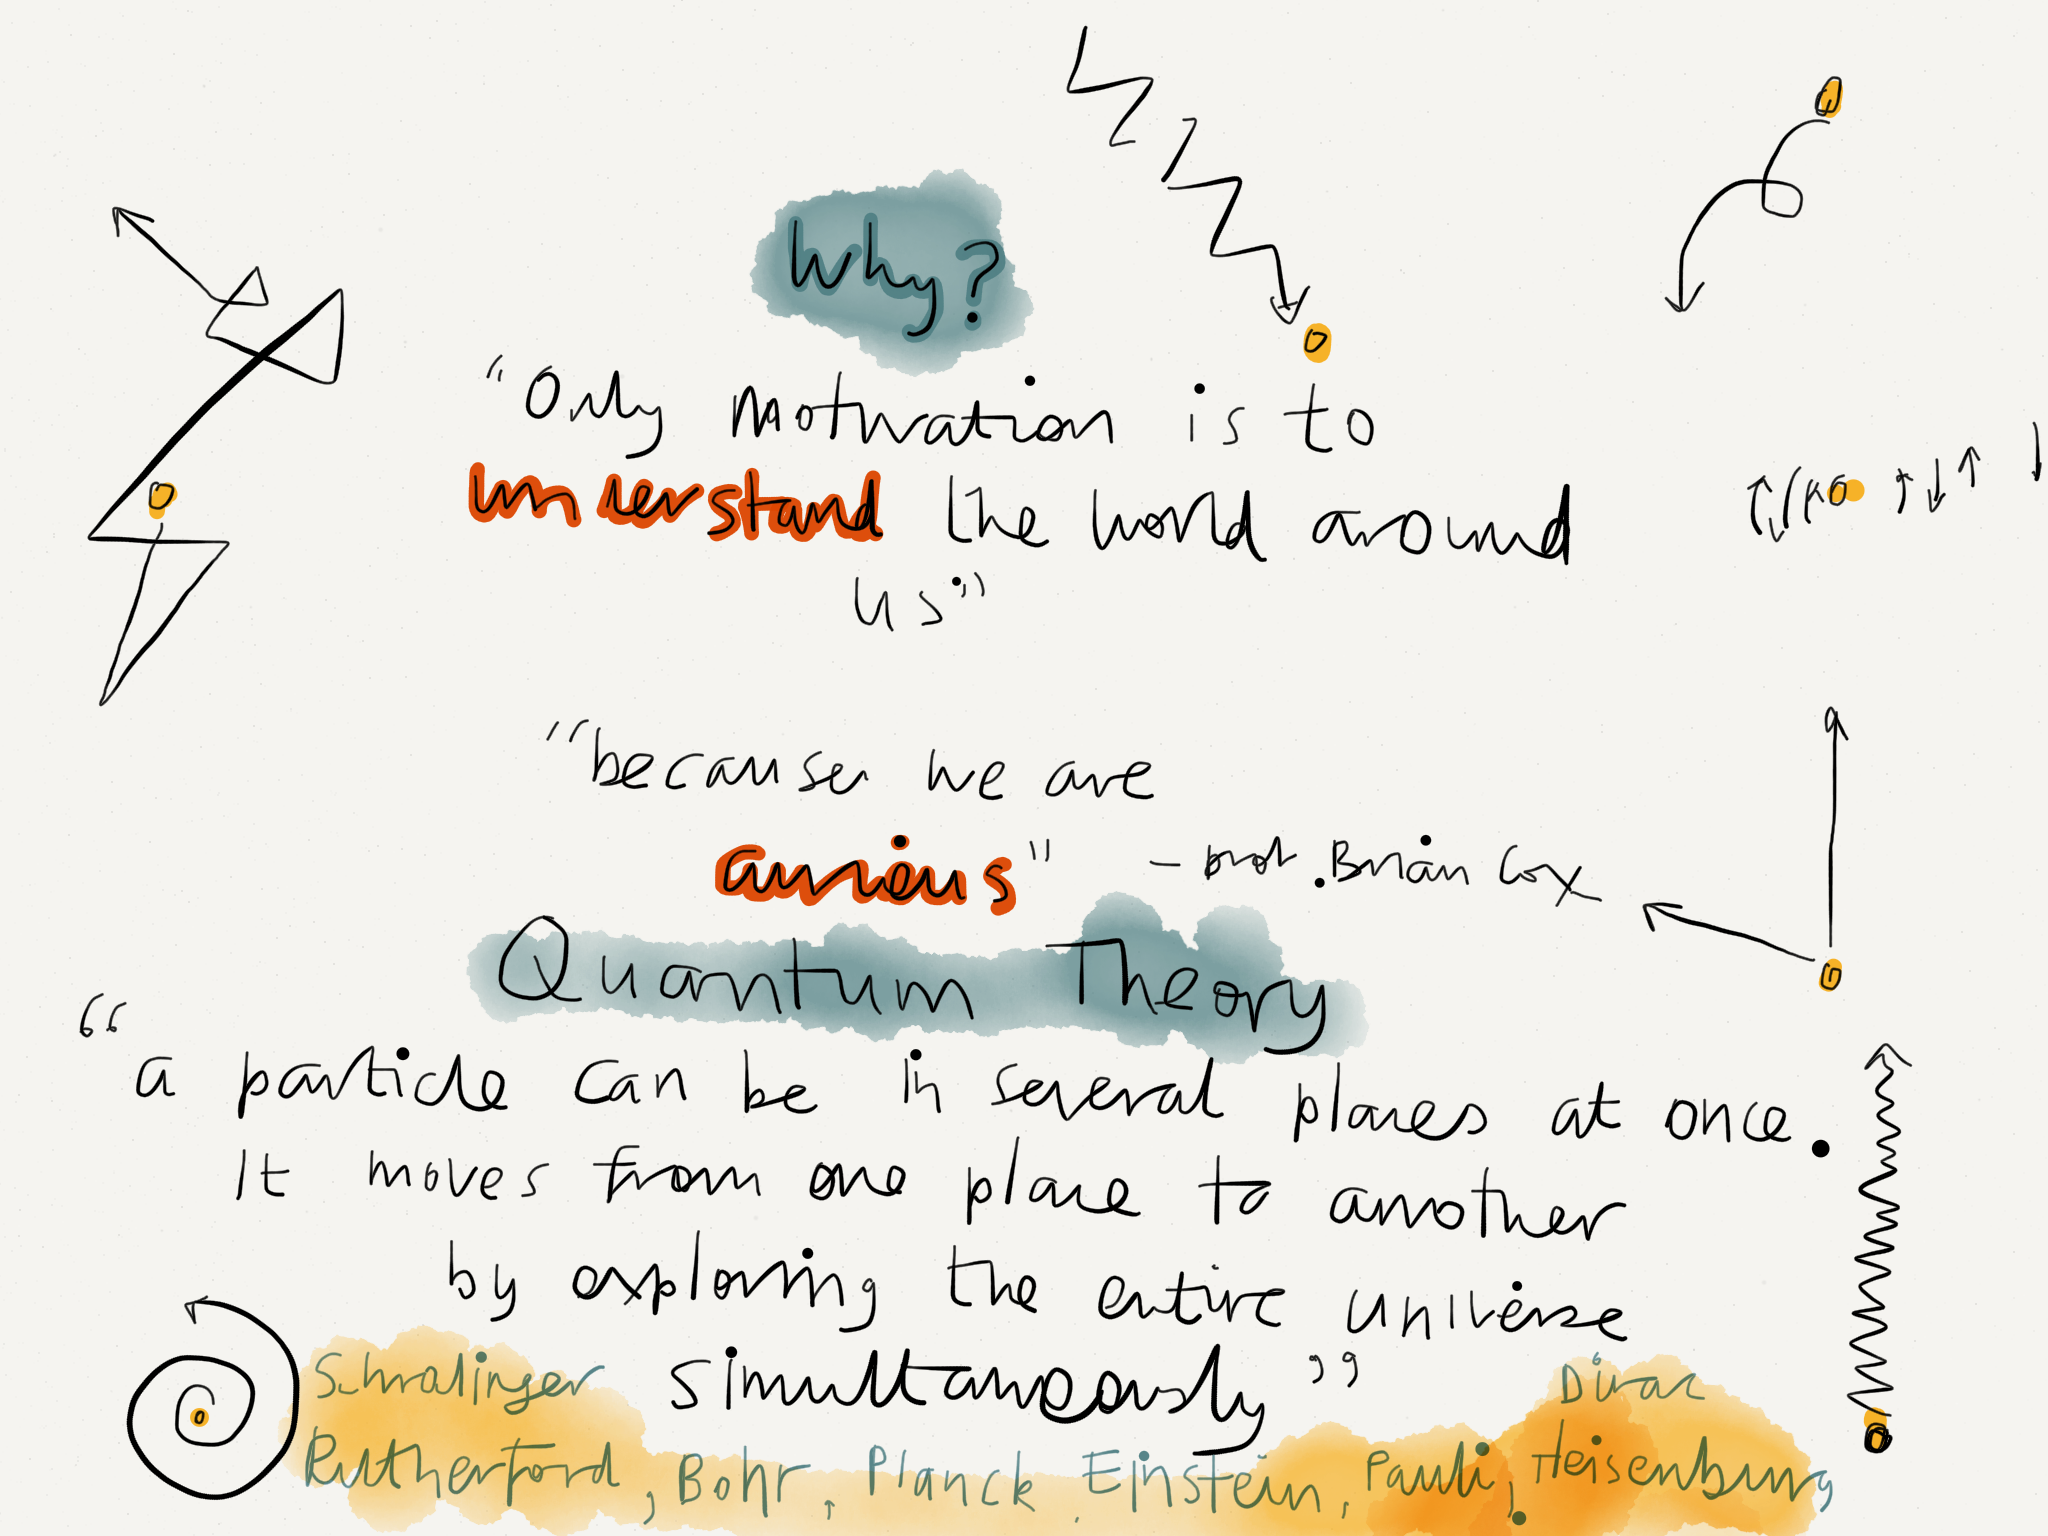 Why?
"Only motivation is to
understand the world around
us."
"because we are
curious" - prof. Brian Cox
Quantum Theory
"a particle can be in several places at once.
It moves from one place to another
by exploring the entire universe
simultaneously"
Schrodinger
Dirac
Rutherford, Bohr, Planck, Einstein, Pauli, Heisenburg